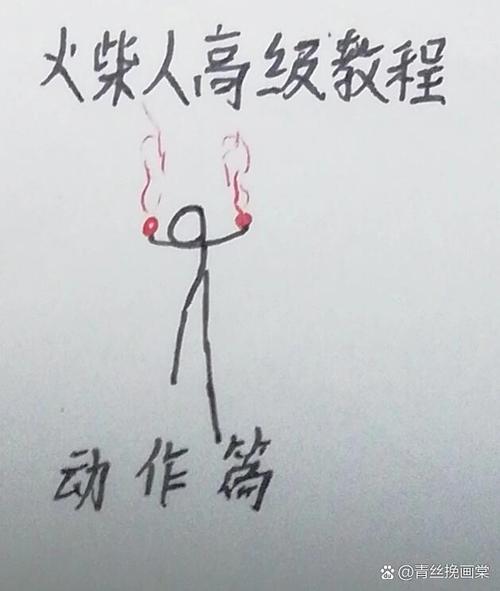 火柴人高级教程
动作篇
@青丝挽画棠